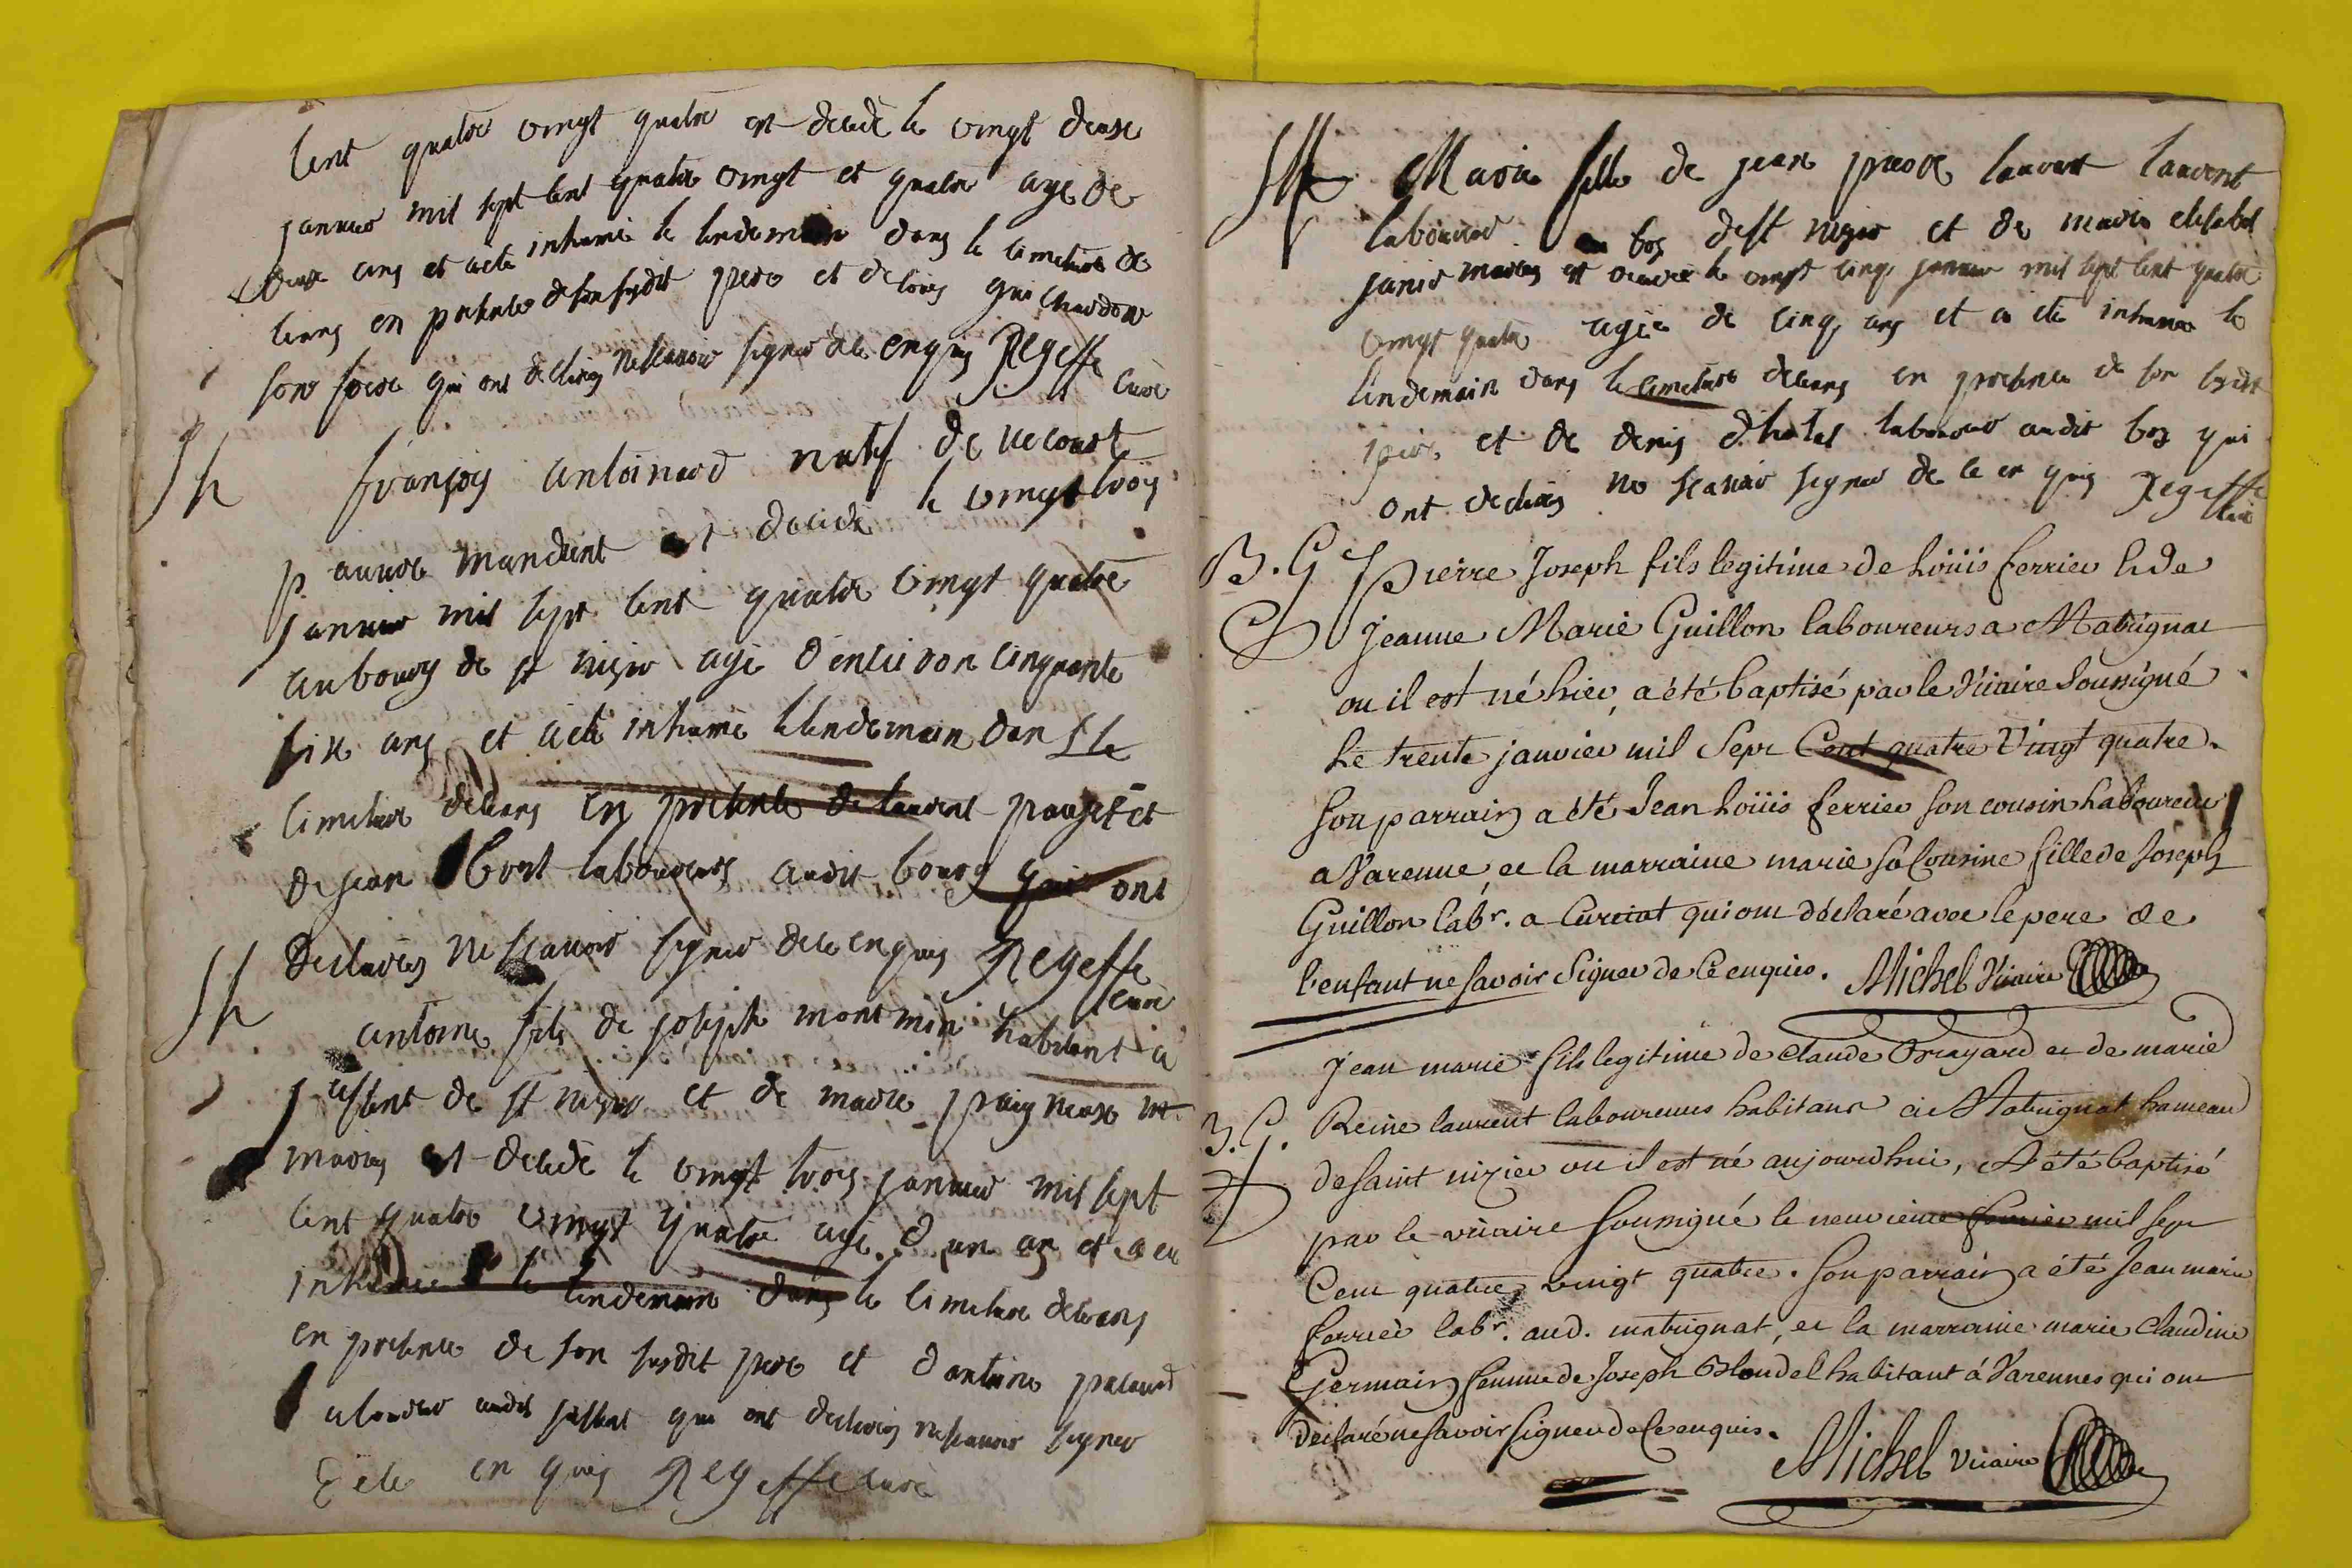 Cent quatre vingt quatre est decede le vingt deuxe
janvier mil sept cent quatre vingt et quatre agé de
deux ans et aete inhumé le lendemain dans le cimetiere de
ceans en presence de son susdit pere et de louis
son frere qui ont declares ne scavoir signer de ce enquis Regeffe curé
Sh
françois antoinard natif de
pauvre mandiant est decede le vingt trois
janvier mil sept cent quatre vingt quatre
au bourg de st nizier agé d'environ cinquante
six ans et aeté inhumé le lendemain dans le
cimetiere deceans en presence de laurent pauget et
de jean laboureurs audit bourg qui ont
declares ne scavoir signer de ce enquis Regeffe
curé
Sh
antoine fils de joseph montmin habitant a
de st nizier et de marie
maries est decede le vingt trois janvier mil sept
cent quatre vingt quatre agé d'un an et a eté
inhumé le lendemain dans le cimetiere deceans
en presence de son susdit pere et d'antoine
audit qui ont declares ne scavoir signer
de ce en quis Regeffe curé
Marie fille de jean laurent
laboureur au bos de st nizier et de marie elisabet
janier maries est decedée le vingt cinq janvier mil sept cent quatre
vingt quatre agée de cinq ans et a eté inhumée le
lendemain dans le cimetiere deceans en presence de son susdit
pere et de denis laboureur audit bos qui
ont declares ne scavoir signer de ce en quis Regeffe
curé
B. G
Pierre Joseph fils legitime de Loüis ferrier & de
Jeanne Marie Guillon laboureurs a Matrignat
ou il est né hier, a été baptisé par le Vicaire Soussigné
Le trente janvier mil Sept Cent quatre Vingt quatre.
Son parrain a été Jean Loüis ferrier son cousin Laboureur
a Varenne, et la marraine marie Sa Cousine fille de Joseph
Guillon labr. a Curciat qui ont déclaré avec le pere de
l'enfant ne Savoir Signer de Ce enquis. Michel Vicaire
B. G.
Jean marie fils legitime de Claude Brayard et de marie
Reine laurent laboureurs habitans à Matrignat hameau
de Saint nizier ou il est né aujourd'hui, A été baptisé
par le vicaire Soussigné le neuvieme fevrier mil Sept
Cent quatre vingt quatre. Son parrain a été Jean marie
ferrier labr. aud. matrignat, et la marraine marie Claudine
Germain femme de Joseph Blondel habitant à Varennes qui ont
declaré ne Savoir Signer de Ce enquis.
Michel vicaire